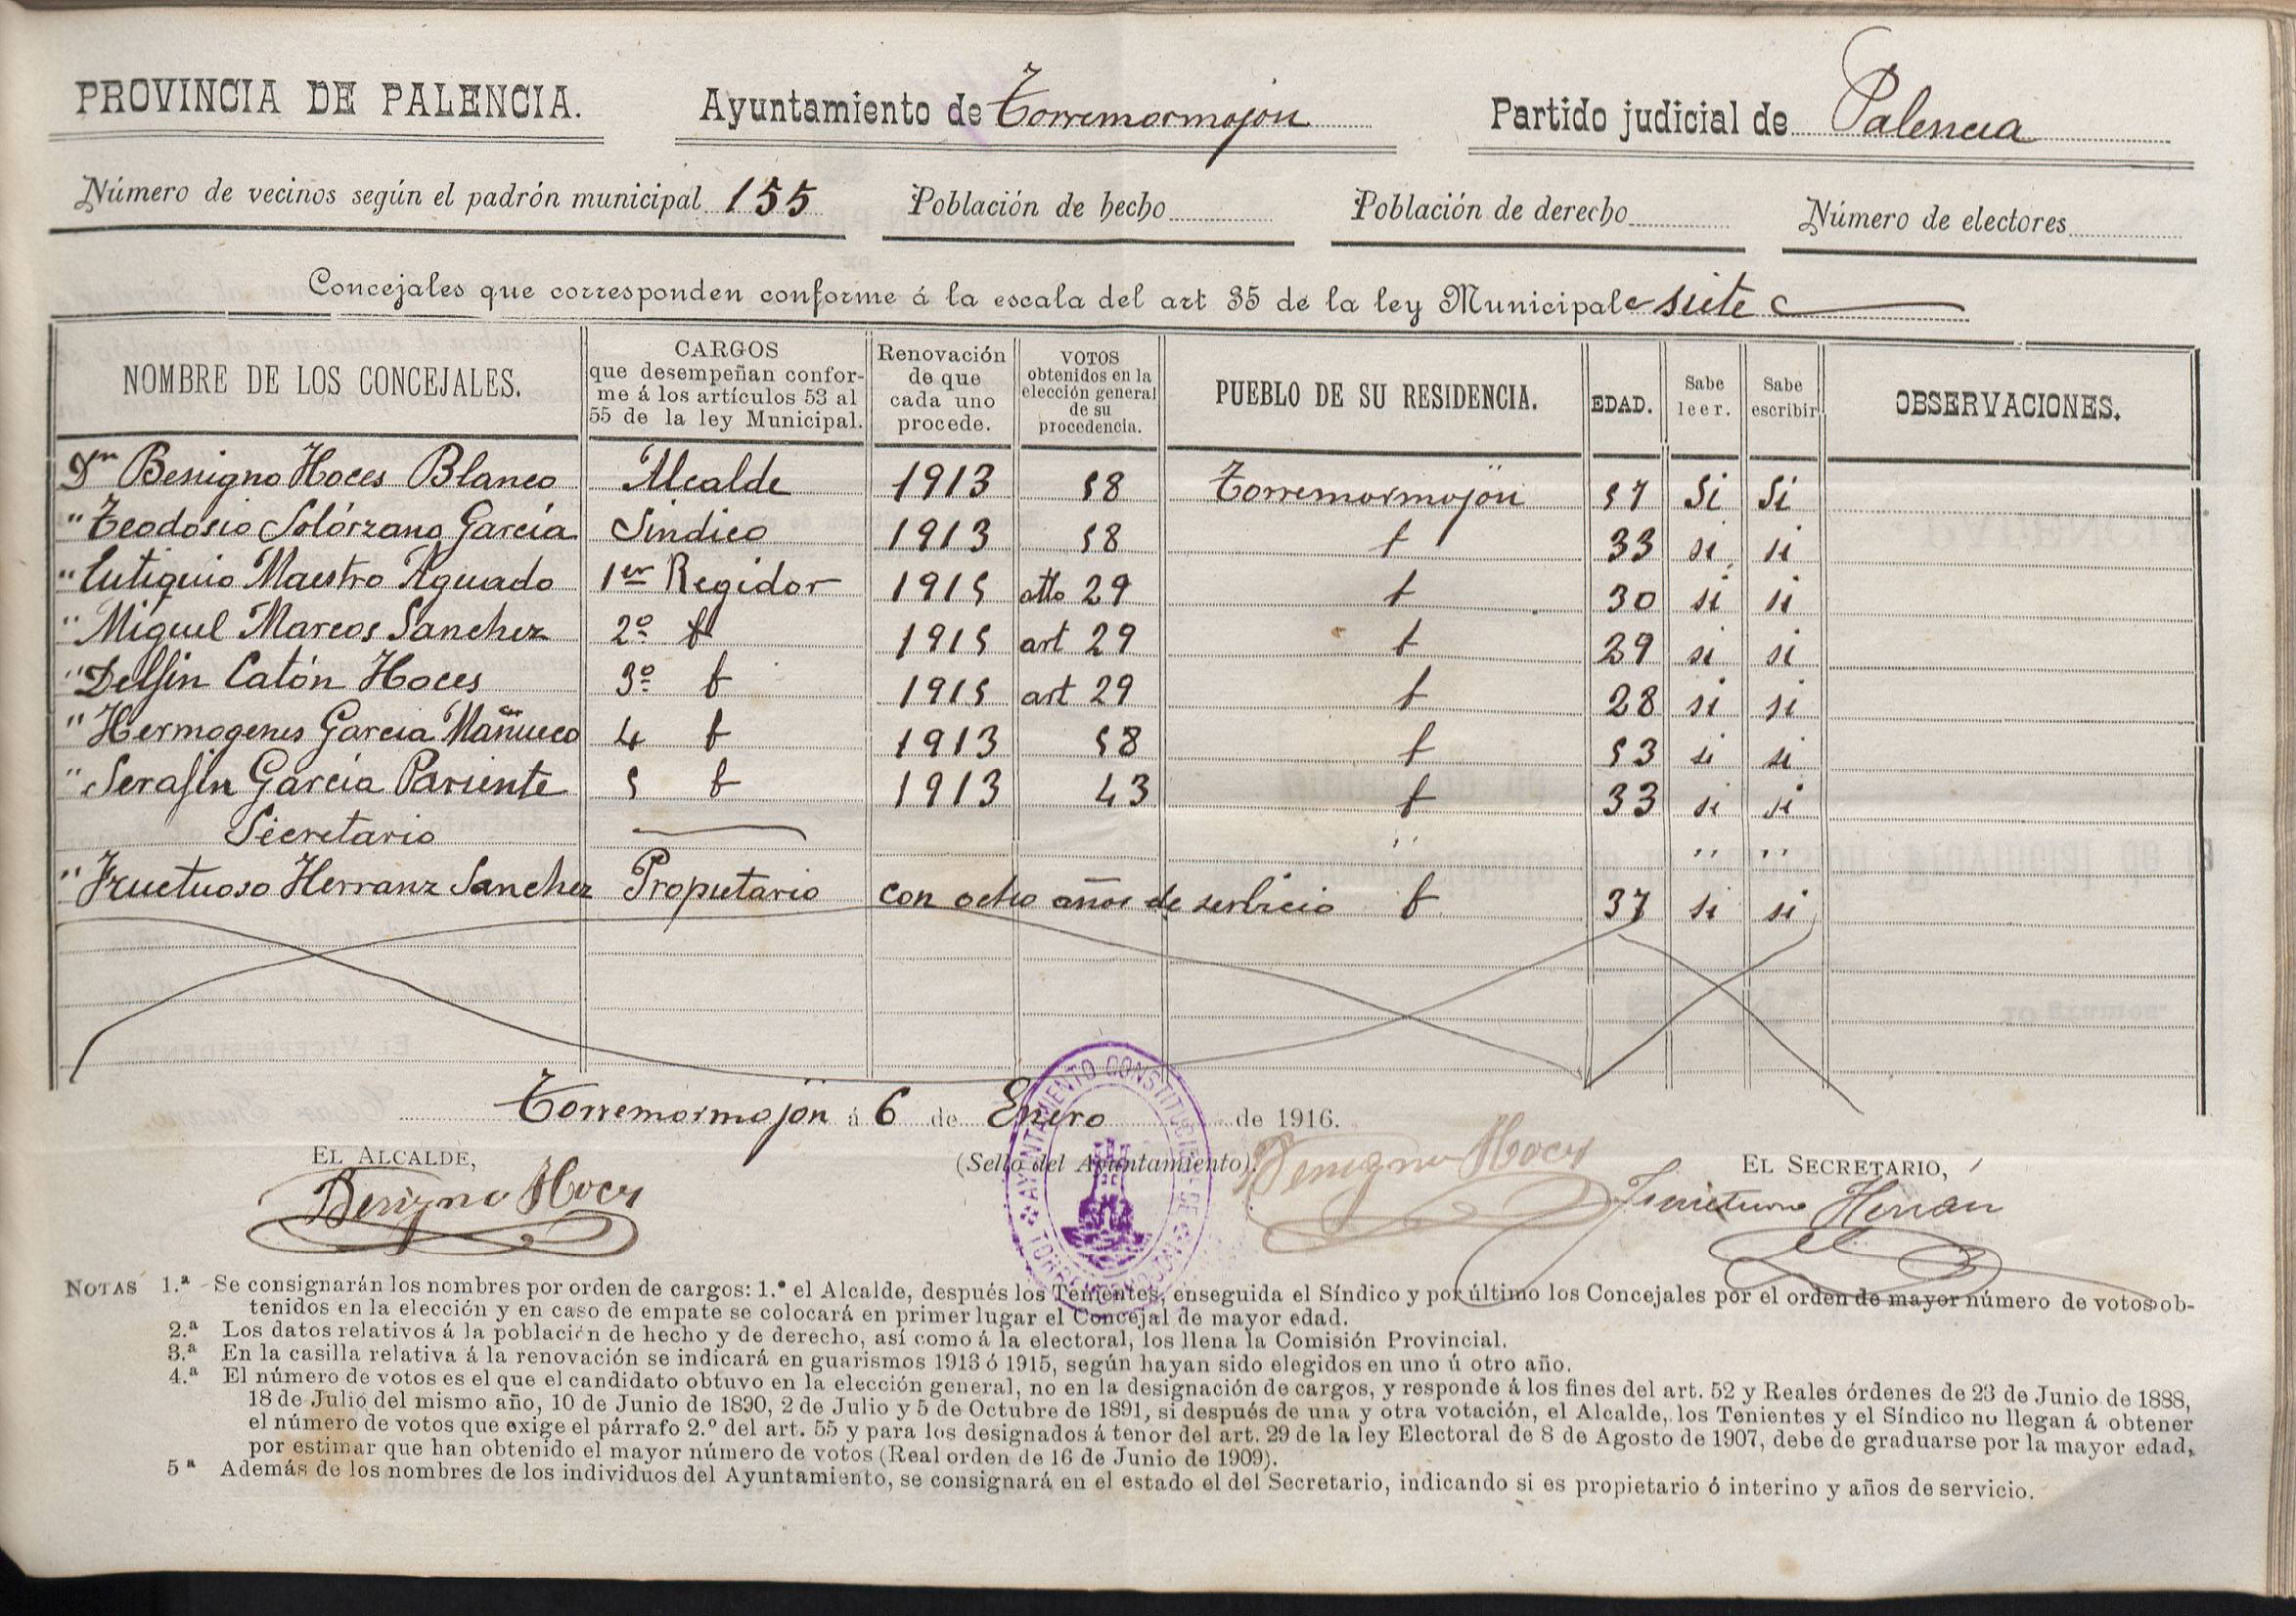 PROVINCIA DE PALENCIA. Ayuntamiento de Torremormojón Partido judicial de Palencia
Número de vecinos según el padrón municipal 155 Población de hecho Población de derecho Número de electores
Concejales que corresponden conforme á la escala del art 35 de la ley Municipal siete
NOMBRE DE LOS CONCEJALES. CARGOS que desempeñan conforme á los artículos 53 al 55 de la ley Municipal. Renovación de que cada uno procede. VOTOS obtenidos en la elección general de su procedencia. PUEBLO DE SU RESIDENCIA. EDAD. Sabe leer. Sabe escribir OBSERVACIONES.
Dn Benigno Hoces Blanco Alcalde 1913 58 Torremormojón 57 Si Si
" Teodosio Solórzano García Sindico 1913 58 t 33 si si
" Eutiquio Maestro Aguado 1er Regidor 1915 atto 29 t 30 si si
" Miguel Marcos Sanchez 2º t 1915 art 29 t 29 si si
" Delfin Catón Hoces 3º t 1915 art 29 t 28 si si
" Hermogenes Garcia Mañueco 4 t 1913 58 t 53 si si
" Serafin García Pariente 5 t 1913 43 t 33 si si
Secretario " " "
" Fructuoso Herranz Sanchez Propietario con ocho años de servicio t 37 si si
Torremormojón á 6 de Enero de 1916.
EL ALCALDE, (Sello del Ayuntamiento). EL SECRETARIO,
Benigno Hoces Benigno Hoces Fructuoso Herran
AYUNTAMIENTO CONSTITUCIONAL DE TORREMORMOJON
NOTAS 1.ª Se consignarán los nombres por orden de cargos: 1.º el Alcalde, después los Tenientes, enseguida el Síndico y por último los Concejales por el orden de mayor número de votos ob-
tenidos en la elección y en caso de empate se colocará en primer lugar el Concejal de mayor edad.
2.ª Los datos relativos á la población de hecho y de derecho, así como á la electoral, los llena la Comisión Provincial.
3.ª En la casilla relativa á la renovación se indicará en guarismos 1913 ó 1915, según hayan sido elegidos en uno ú otro año.
4.ª El número de votos es el que el candidato obtuvo en la elección general, no en la designación de cargos, y responde á los fines del art. 52 y Reales órdenes de 23 de Junio de 1888,
18 de Julio del mismo año, 10 de Junio de 1890, 2 de Julio y 5 de Octubre de 1891, si después de una y otra votación, el Alcalde, los Tenientes y el Síndico no llegan á obtener
el número de votos que exige el párrafo 2.º del art. 55 y para los designados á tenor del art. 29 de la ley Electoral de 8 de Agosto de 1907, debe de graduarse por la mayor edad,
por estimar que han obtenido el mayor número de votos (Real orden de 16 de Junio de 1909).
5ª Además de los nombres de los individuos del Ayuntamiento, se consignará en el estado el del Secretario, indicando si es propietario ó interino y años de servicio.